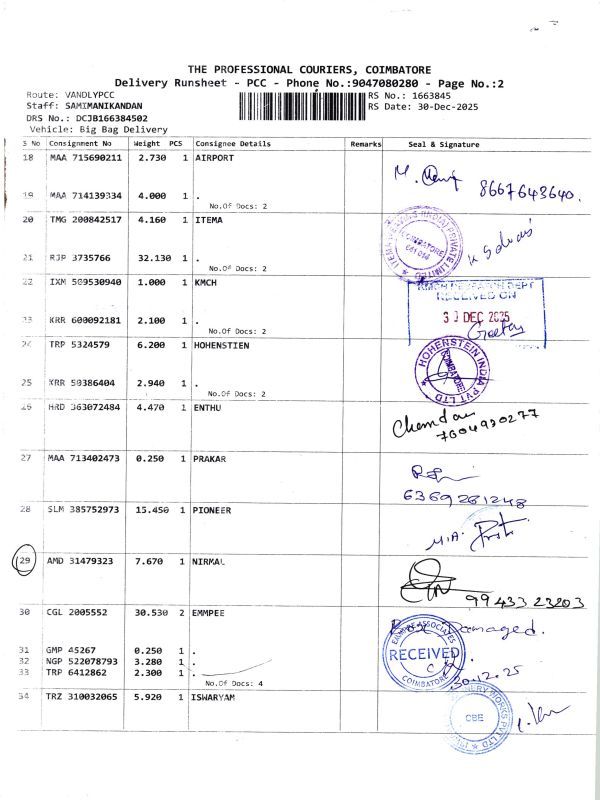 THE PROFESSIONAL COURIERS, COIMBATORE
Delivery Runsheet - PCC - Phone No.:9047080280 - Page No.:2
Route: VANDLYPCC
RS No.: 1663845
Staff: SAMIMANIKANDAN
RS Date: 30-Dec-2025
DRS No.: DCJB166384502
Vehicle: Big Bag Delivery
S No Consignment No Weight PCS Consignee Details Remarks Seal & Signature
18 MAA 715690211 2.730 1 AIRPORT
8667643640.
19 MAA 714139334 4.000 1 .
No.Of Docs: 2
20 TMG 200842517 4.160 1 ITEMA
COIMBATORE
21 RJP 3735766 32.130 1 .
No.Of Docs: 2
22 IXM 509530940 1.000 1 KMCH
KMCH RESEARCH DEPT
RECEIVED ON
30 DEC 2025
23 KRR 600092181 2.100 1 .
No.Of Docs: 2
24 TRP 5324579 6.200 1 HOHENSTIEN
HOHENSTEIN INDIA PVT LTD
COIMBATORE
25 KRR 50386404 2.940 1 .
No.Of Docs: 2
26 HRD 363072484 4.470 1 ENTHU
7604930277
27 MAA 713402473 0.250 1 PRAKAR
6369261248
28 SLM 385752973 15.450 1 PIONEER
29 AMD 31479323 7.670 1 NIRMAL
9943323203
30 CGL 2005552 30.530 2 EMMPEE
Box Damaged.
EMMPEE ASSOCIATES
RECEIVED
COIMBATORE
30.12.25
31 GMP 45267 0.250 1 .
32 NGP 522078793 3.280 1 .
33 TRP 6412862 2.300 1 .
No.Of Docs: 4
34 TRZ 310032065 5.920 1 ISWARYAM
CBE